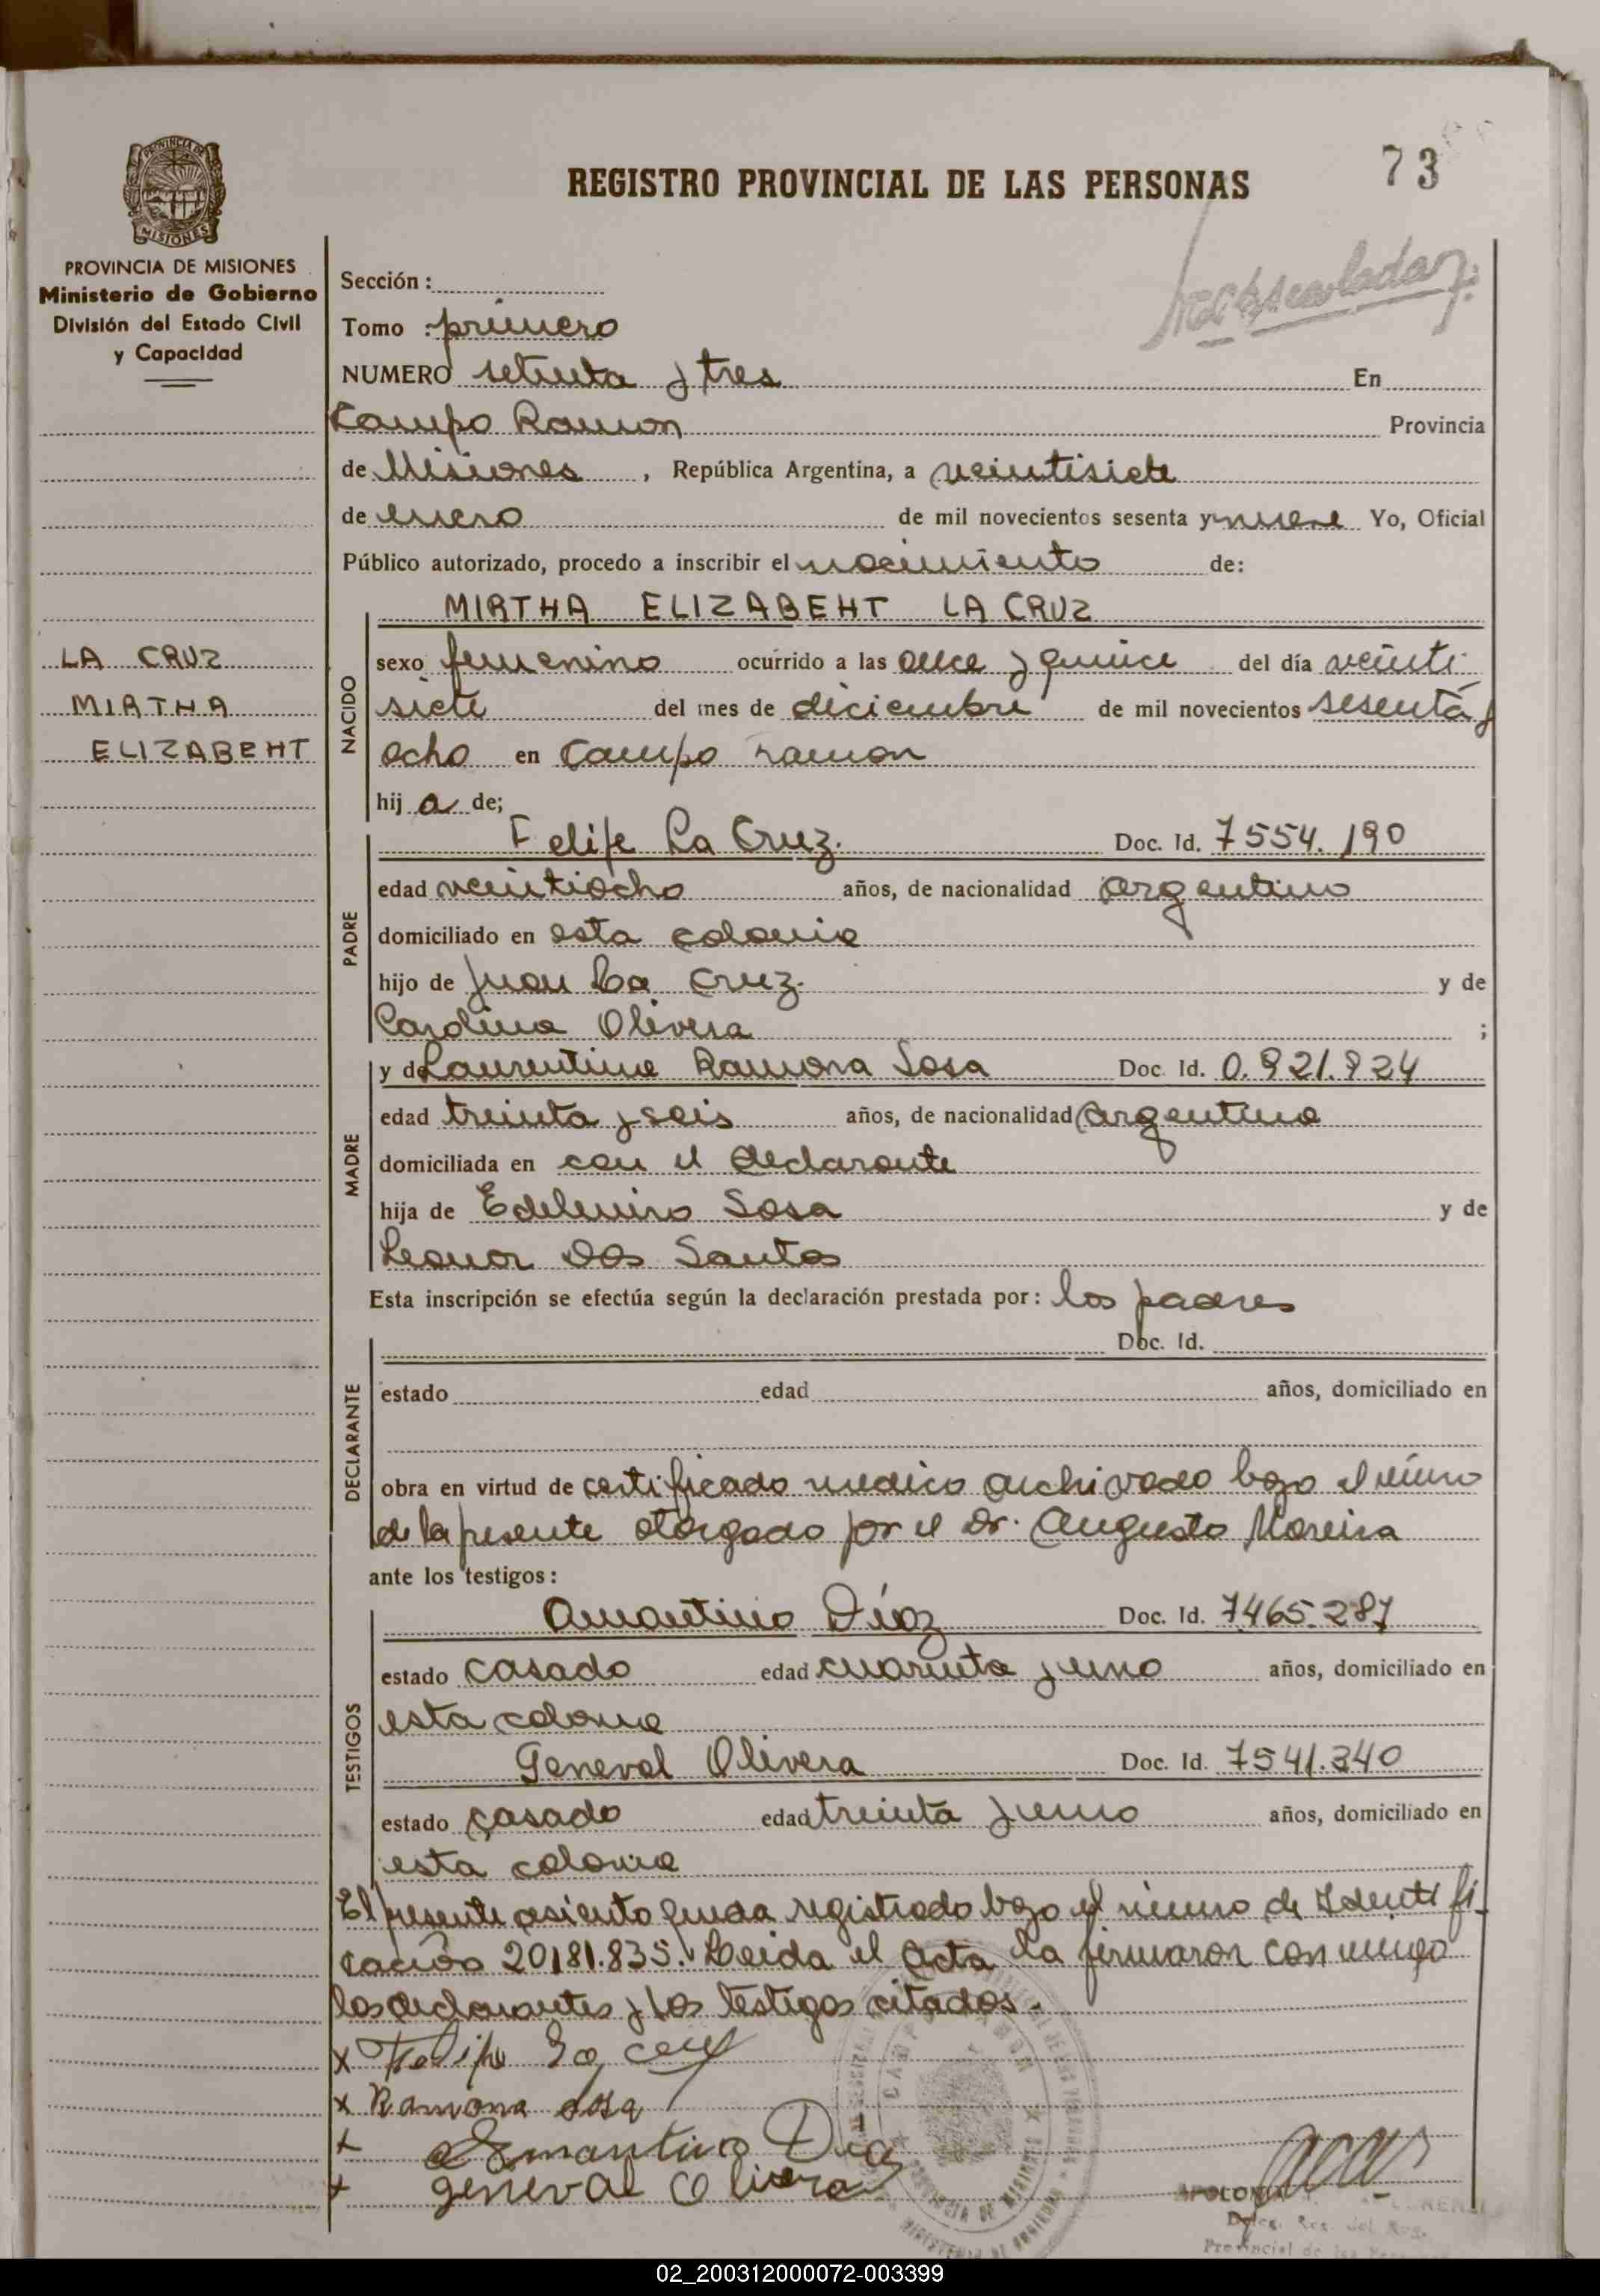 73
REGISTRO PROVINCIAL DE LAS PERSONAS
PROVINCIA DE MISIONES
Ministerio de Gobierno
División del Estado Civil
y Capacidad
Sección :
Tomo : primero
NUMERO setenta y tres En
Campo Ramon Provincia
de Misiones , República Argentina, a veintisiete
de enero de mil novecientos sesenta y nueve Yo, Oficial
Público autorizado, procedo a inscribir el nacimiento de:
MIRTHA ELIZABEHT LA CRUZ
LA CRUZ
MIRTHA
ELIZABEHT
NACIDO
sexo femenino ocurrido a las once y quince del día veinti
siete del mes de diciembre de mil novecientos sesenta y
ocho en Campo Ramon
hij a de;
PADRE
Felipe La Cruz. Doc. Id. 7554.190
edad veintiocho años, de nacionalidad argentino
domiciliado en esta colonia
hijo de Juan La Cruz. y de
Carolina Olivera ;
MADRE
y de Laurentina Ramona Sosa Doc. Id. 0.921.924
edad treinta y seis años, de nacionalidad argentina
domiciliada en con el declarante
hija de Edelmiro Sosa y de
Leonor Dos Santos
Esta inscripción se efectúa según la declaración prestada por: los padres
DECLARANTE
Doc. Id.
estado edad años, domiciliado en
obra en virtud de certificado medico archivado bajo el número
de la presente otorgado por el Dr. Augusto Moreira
ante los testigos:
TESTIGOS
Amantino Díaz Doc. Id. 7.465.287
estado casado edad cuarenta y uno años, domiciliado en
esta colonia
Geneval Olivera Doc. Id. 7541.340
estado casado edad treinta y uno años, domiciliado en
esta colonia
El presente asiento queda registrado bajo el número de Identifi-
cación 20181.835. Leida el acta la firmaron conmigo
los declarantes y los testigos citados.
x Felipe La Cruz
x Ramona sosa
x Amantino Diaz
x geneval Olivera
02_200312000072-003399